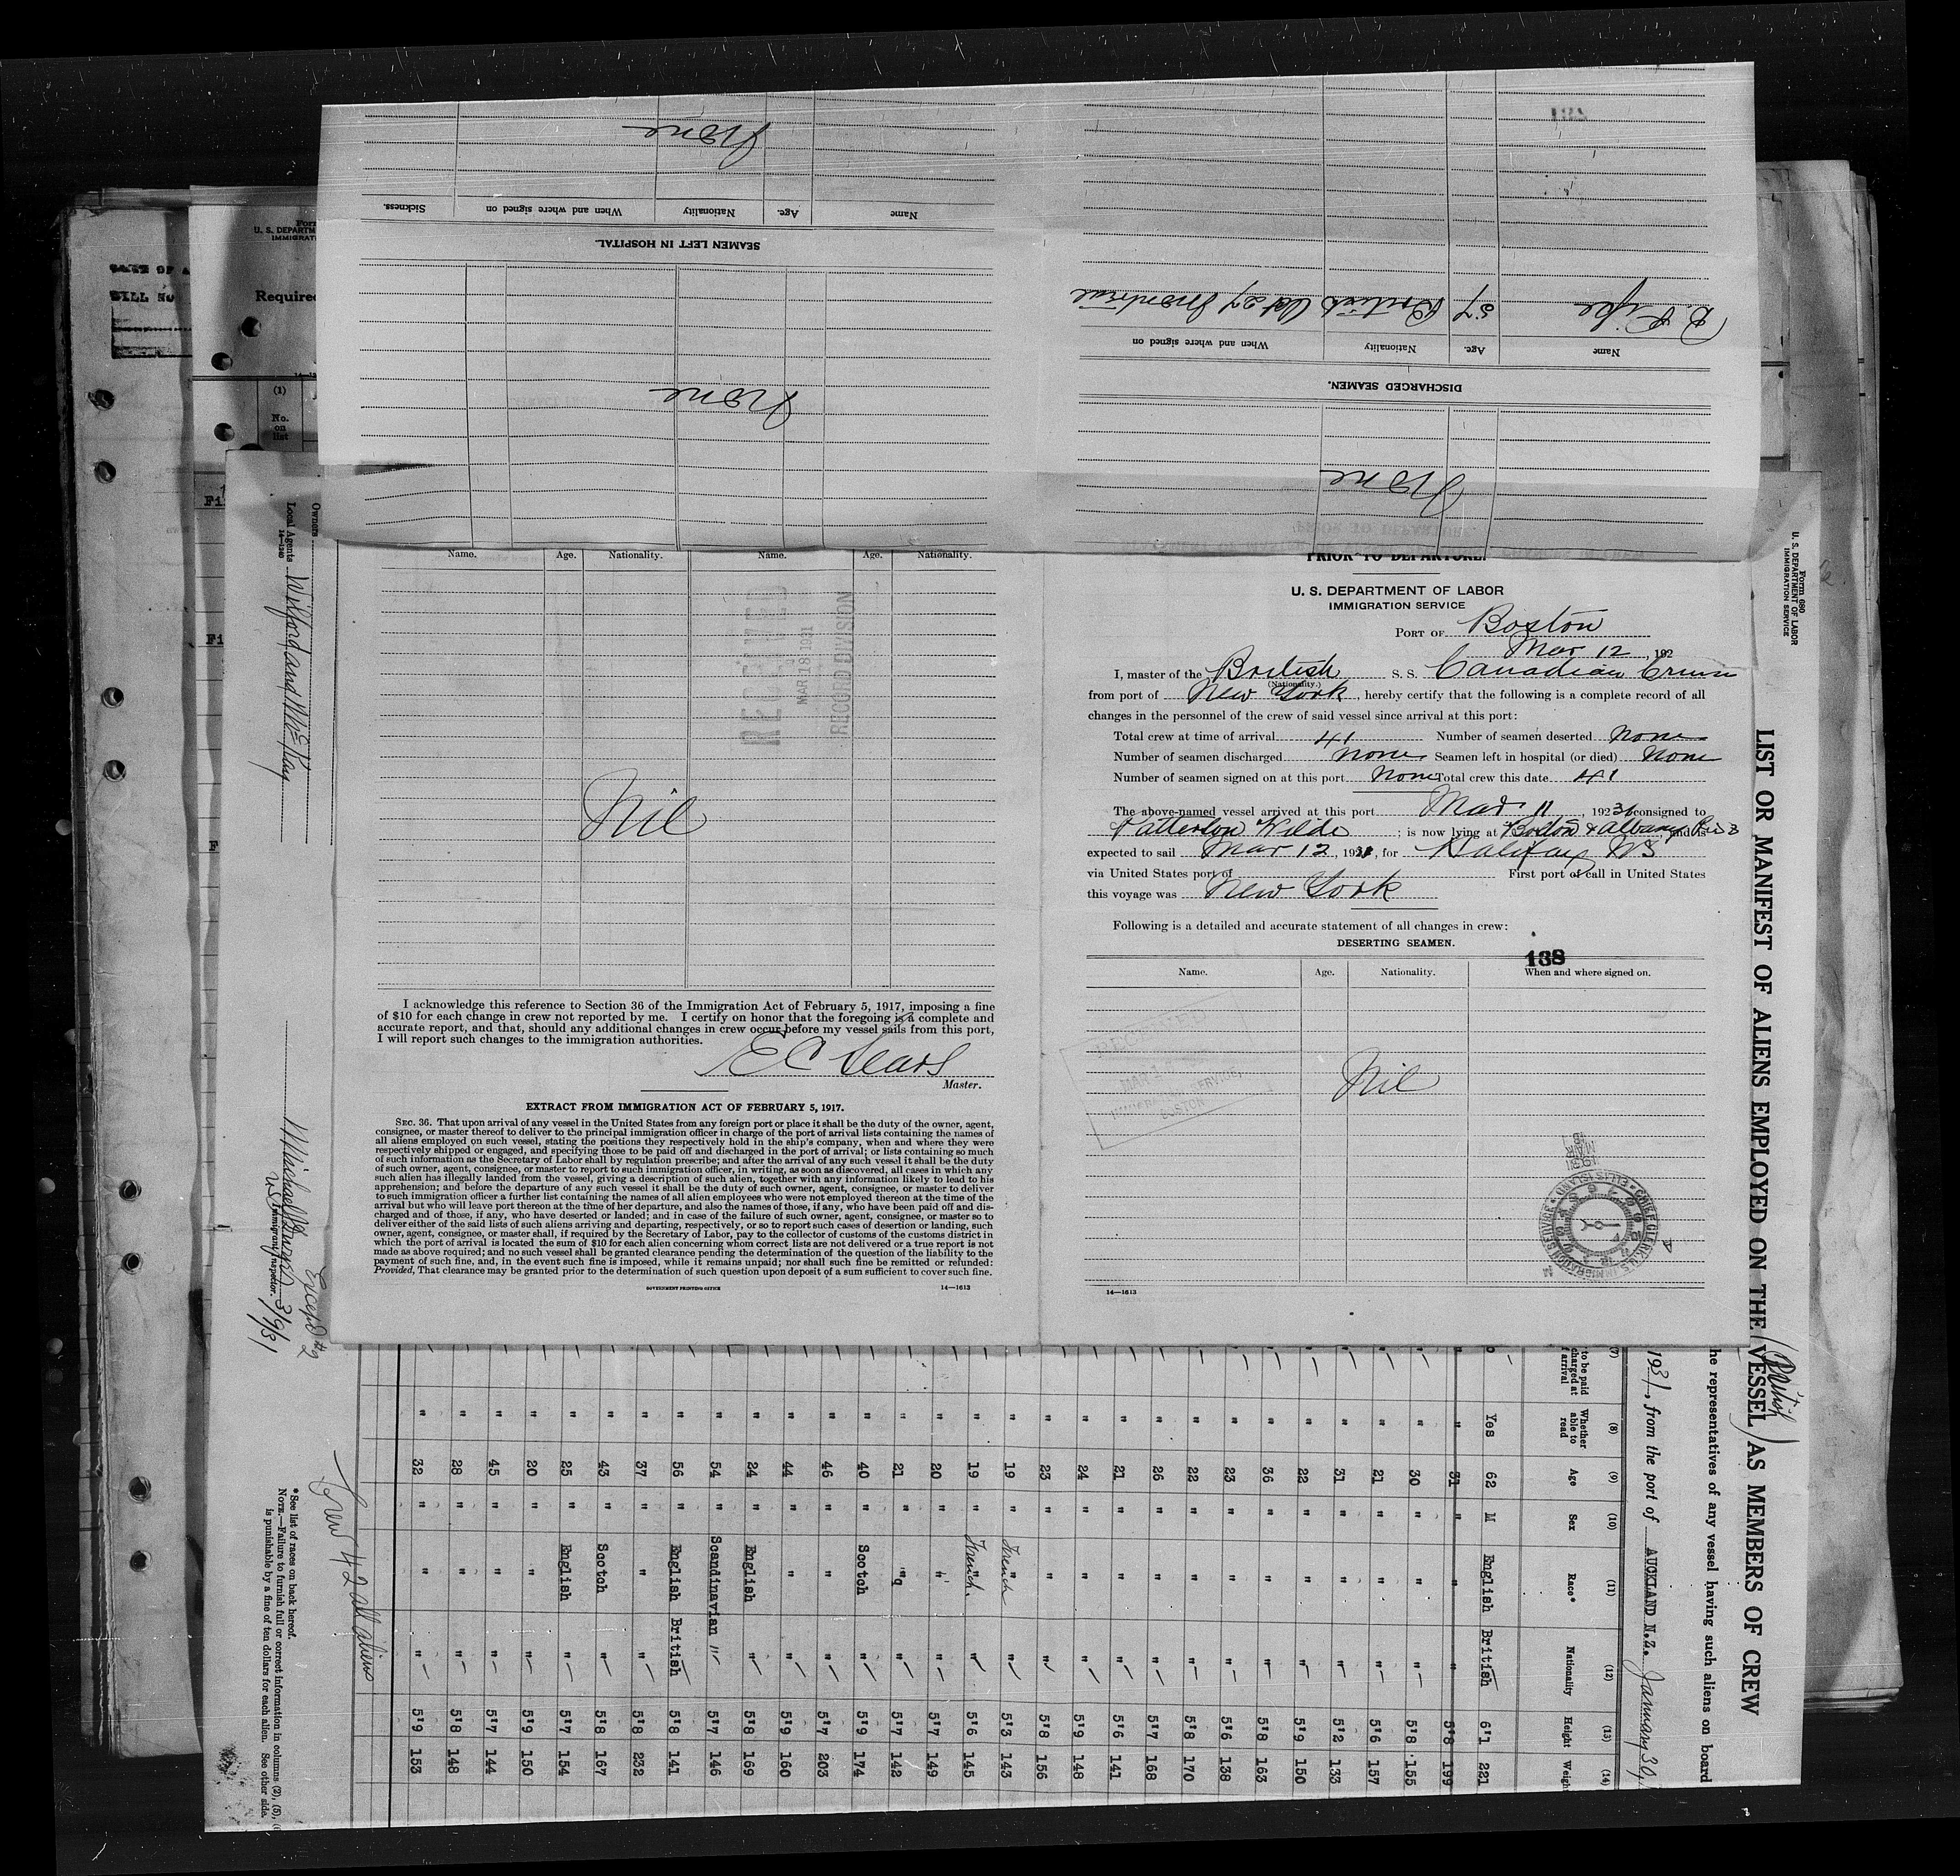 Name
Age.
Nationality
When and where signed on
Sickness.
None
SEAMEN LEFT IN HOSPITAL.
None
DISCHARGED SEAMEN.
Name
Age.
Nationality
When and where signed on
57 British Oct 27 Montreal
None
Form
U. S. DEPARTM
IMMIGRAT
Required
BILL NO
(1)
No.
on
list
Name.
Age.
Nationality.
Name.
Age.
Nationality.
RECEIVED
MAR 18 1931
RECORD DIVISION
Nil
I acknowledge this reference to Section 36 of the Immigration Act of February 5, 1917, imposing a fine
of $10 for each change in crew not reported by me. I certify on honor that the foregoing is a complete and
accurate report, and that, should any additional changes in crew occur before my vessel sails from this port,
I will report such changes to the immigration authorities.
E C Sears
Master.
EXTRACT FROM IMMIGRATION ACT OF FEBRUARY 5, 1917.
SEC. 36. That upon arrival of any vessel in the United States from any foreign port or place it shall be the duty of the owner, agent,
consignee, or master thereof to deliver to the principal immigration officer in charge of the port of arrival lists containing the names of
all aliens employed on such vessel, stating the positions they respectively hold in the ship's company, when and where they were
respectively shipped or engaged, and specifying those to be paid off and discharged in the port of arrival; or lists containing so much
of such information as the Secretary of Labor shall by regulation prescribe; and after the arrival of any such vessel it shall be the duty
of such owner, agent, consignee, or master to report to such immigration officer, in writing, as soon as discovered, all cases in which any
such alien has illegally landed from the vessel, giving a description of such alien, together with any information likely to lead to his
apprehension; and before the departure of any such vessel it shall be the duty of such owner, agent, consignee, or master to deliver
to such immigration officer a further list containing the names of all alien employees who were not employed thereon at the time of the
arrival but who will leave port thereon at the time of her departure, and also the names of those, if any, who have been paid off and dis-
charged and of those, if any, who have deserted or landed; and in case of the failure of such owner, agent, consignee, or master so to
deliver either of the said lists of such aliens arriving and departing, respectively, or so to report such cases of desertion or landing, such
owner, agent, consignee, or master, shall, if required by the Secretary of Labor, pay to the collector of customs of the customs district in
which the port of arrival is located the sum of $10 for each alien concerning whom correct lists are not delivered or a true report is not
made as above required; and no such vessel shall be granted clearance pending the determination of the question of the liability to the
payment of such fine, and, in the event such fine is imposed, while it remains unpaid; nor shall such fine be remitted or refunded:
Provided, That clearance may be granted prior to the determination of such question upon deposit of a sum sufficient to cover such fine.
GOVERNMENT PRINTING OFFICE
14—1613
PRIOR TO DEPARTURE.
U. S. DEPARTMENT OF LABOR
IMMIGRATION SERVICE
PORT OF Boston
Mar 12, 192
I, master of the British S. S. Canadian
(Nationality.)
from port of New York, hereby certify that the following is a complete record of all
changes in the personnel of the crew of said vessel since arrival at this port:
Total crew at time of arrival 41 Number of seamen deserted None
Number of seamen discharged None Seamen left in hospital (or died) None
Number of seamen signed on at this port None Total crew this date 41
The above-named vessel arrived at this port Mar 11, 1931 consigned to
Patterson Wilde; is now lying at Boston & Albany and is
expected to sail Mar 12, 1931, for Halifax NS
via United States port of First port of call in United States
this voyage was New York
Following is a detailed and accurate statement of all changes in crew:
DESERTING SEAMEN.
138
Name.
Age.
Nationality.
When and where signed on.
Nil
IMMIGRATION SERVICE,
BOSTON
1931
MAR
CHIEF CLERK U.S. IMMIGRATION SERVICE ELLIS ISLAND
14—1613
Form 680
U. S. DEPARTMENT OF LABOR
IMMIGRATION SERVICE
LIST OR MANIFEST OF ALIENS EMPLOYED ON THE (British VESSEL) AS MEMBERS OF CREW
he representatives of any vessel having such aliens on board
1931, from the port of AUCKLAND N.Z. January 30
(7)
to be paid
charged at
arrival
(8)
Whether
able to
read
(9)
Age
(10)
Sex
(11)
Race*
(12)
Nationality
(13)
Height
(14)
Weigh
Yes 62 M English British 6'1 221
" 31 " " " 5'8 199
" 30 " " " 5'8 155
" 21 " " " 5'6 157
" 31 " " " 5'2 133
" 22 " " " 5'9 150
" 36 " " " 5'8 163
" 23 " " " 5'6 138
" 22 " " " 5'8 170
" 26 " " " 5'7 168
" 21 " " " 5'6 141
" 24 " " " 5'9 148
" 23 " " " 5'8 156
" 19 " French " 5'3 143
" 19 " French " 5'6 145
" 20 " " " 5'7 149
" 21 " " " 5'7 142
" 40 " Scotch " 5'9 174
" 46 " " " 5'7 203
" 44 " " " 5'9 160
" 24 " English " 5'8 169
" 54 " Scandinavian " 5'7 146
" 56 " English British 5'8 141
" 37 " " " 5'8 232
" 43 " Scotch " 5'8 167
" 25 " English " 5'7 154
" 20 " " " 5'9 150
" 45 " " " 5'7 144
" 28 " " " 5'8 148
" 32 " " " 5'9 153
Crew 42 all aliens
Owners
Local Agents Wilford and McKay
14—1240
Except #2
3/9/31
Immigrant Inspector.
*See list of races on back hereof.
NOTE.—Failure to furnish full or correct information in columns (2), (5),
is punishable by a fine of ten dollars for each alien. See other side.